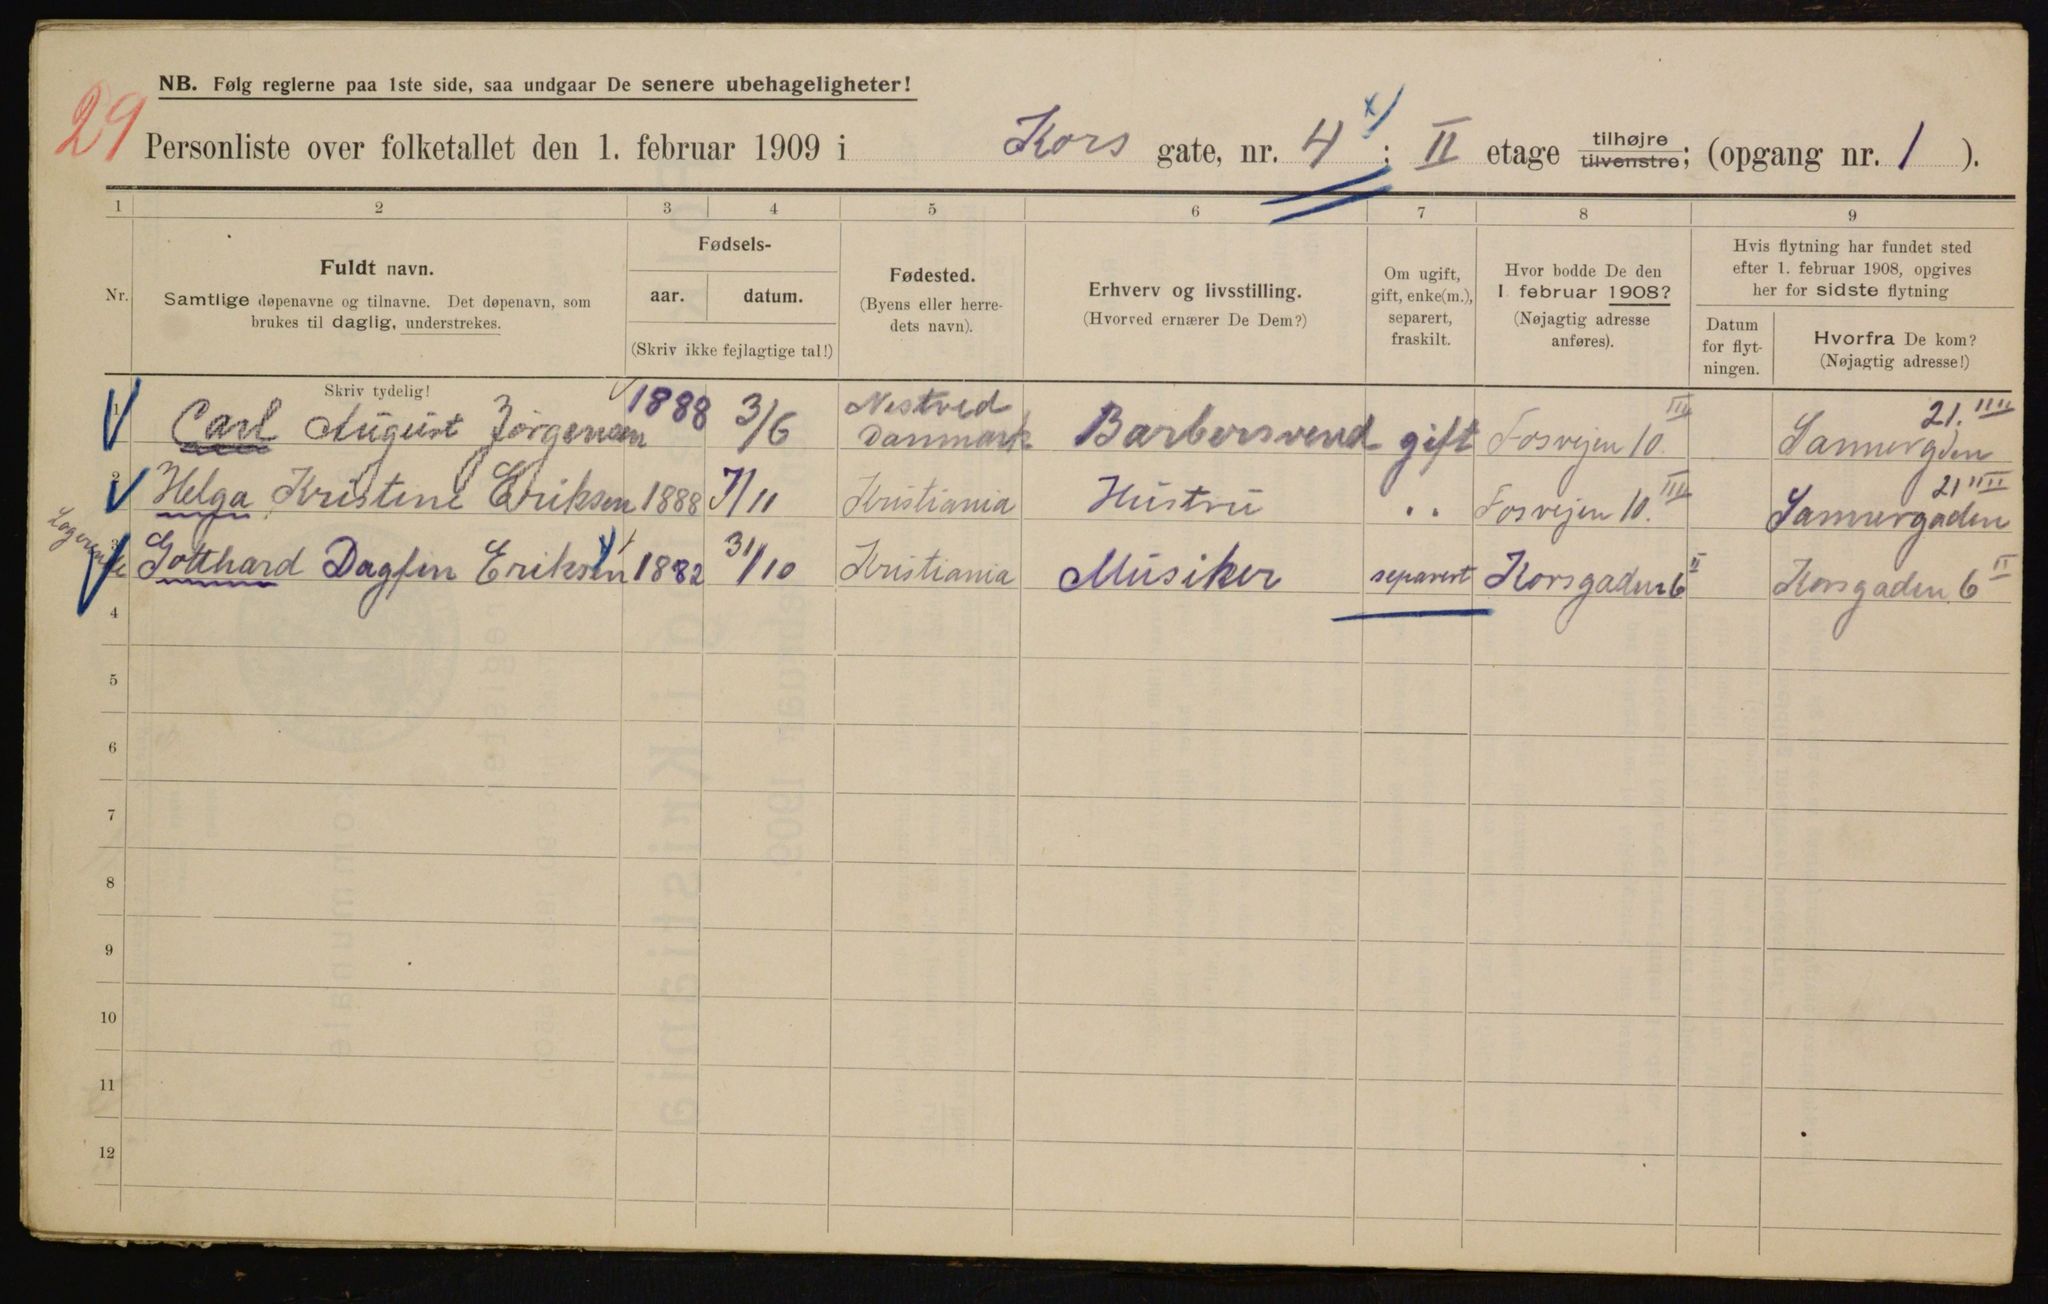 NB. Følg reglerne paa 1ste side, saa undgaar De senere ubehageligheter!
29
Personliste over folketallet den 1. februar 1909 i Kors gate, nr. 4 x) ; II etage tilhøjre tilvenstre; (opgang nr. 1 ).
1 2 3 4 5 6 7 8 9
Nr.
Fuldt navn.
Samtlige døpenavne og tilnavne. Det døpenavn, som
brukes til daglig, understrekes.
Skriv tydelig!
Fødsels-
aar. datum.
(Skriv ikke fejlagtige tal!)
Fødested.
(Byens eller herre-
dets navn).
Erhverv og livsstilling.
(Hvorved ernærer De Dem?)
Om ugift,
gift, enke(m.),
separert,
fraskilt.
Hvor bodde De den
1. februar 1908?
(Nøjagtig adresse
anføres).
Hvis flytning har fundet sted
efter 1. februar 1908, opgives
her for sidste flytning
Datum
for flyt-
ningen.
Hvorfra De kom?
(Nøjagtig adresse!)
1 Carl August Jörgensen 1888 3/6 Nestved Danmark Barbersvend gift Fosvejen 10. III Sannergden 21. IIII
2 Helga Kristine Eriksen 1888 7/11 Kristiania Hustru " Fosvejen 10. III Sannergaden 21 IIII
Logerende
3 Gotthard Dagfin Eriksen 1882 31/10 Kristiania Musiker separert Korsgaden 6 II Korsgaden 6 II
4
5
6
7
8
9
10
11
12